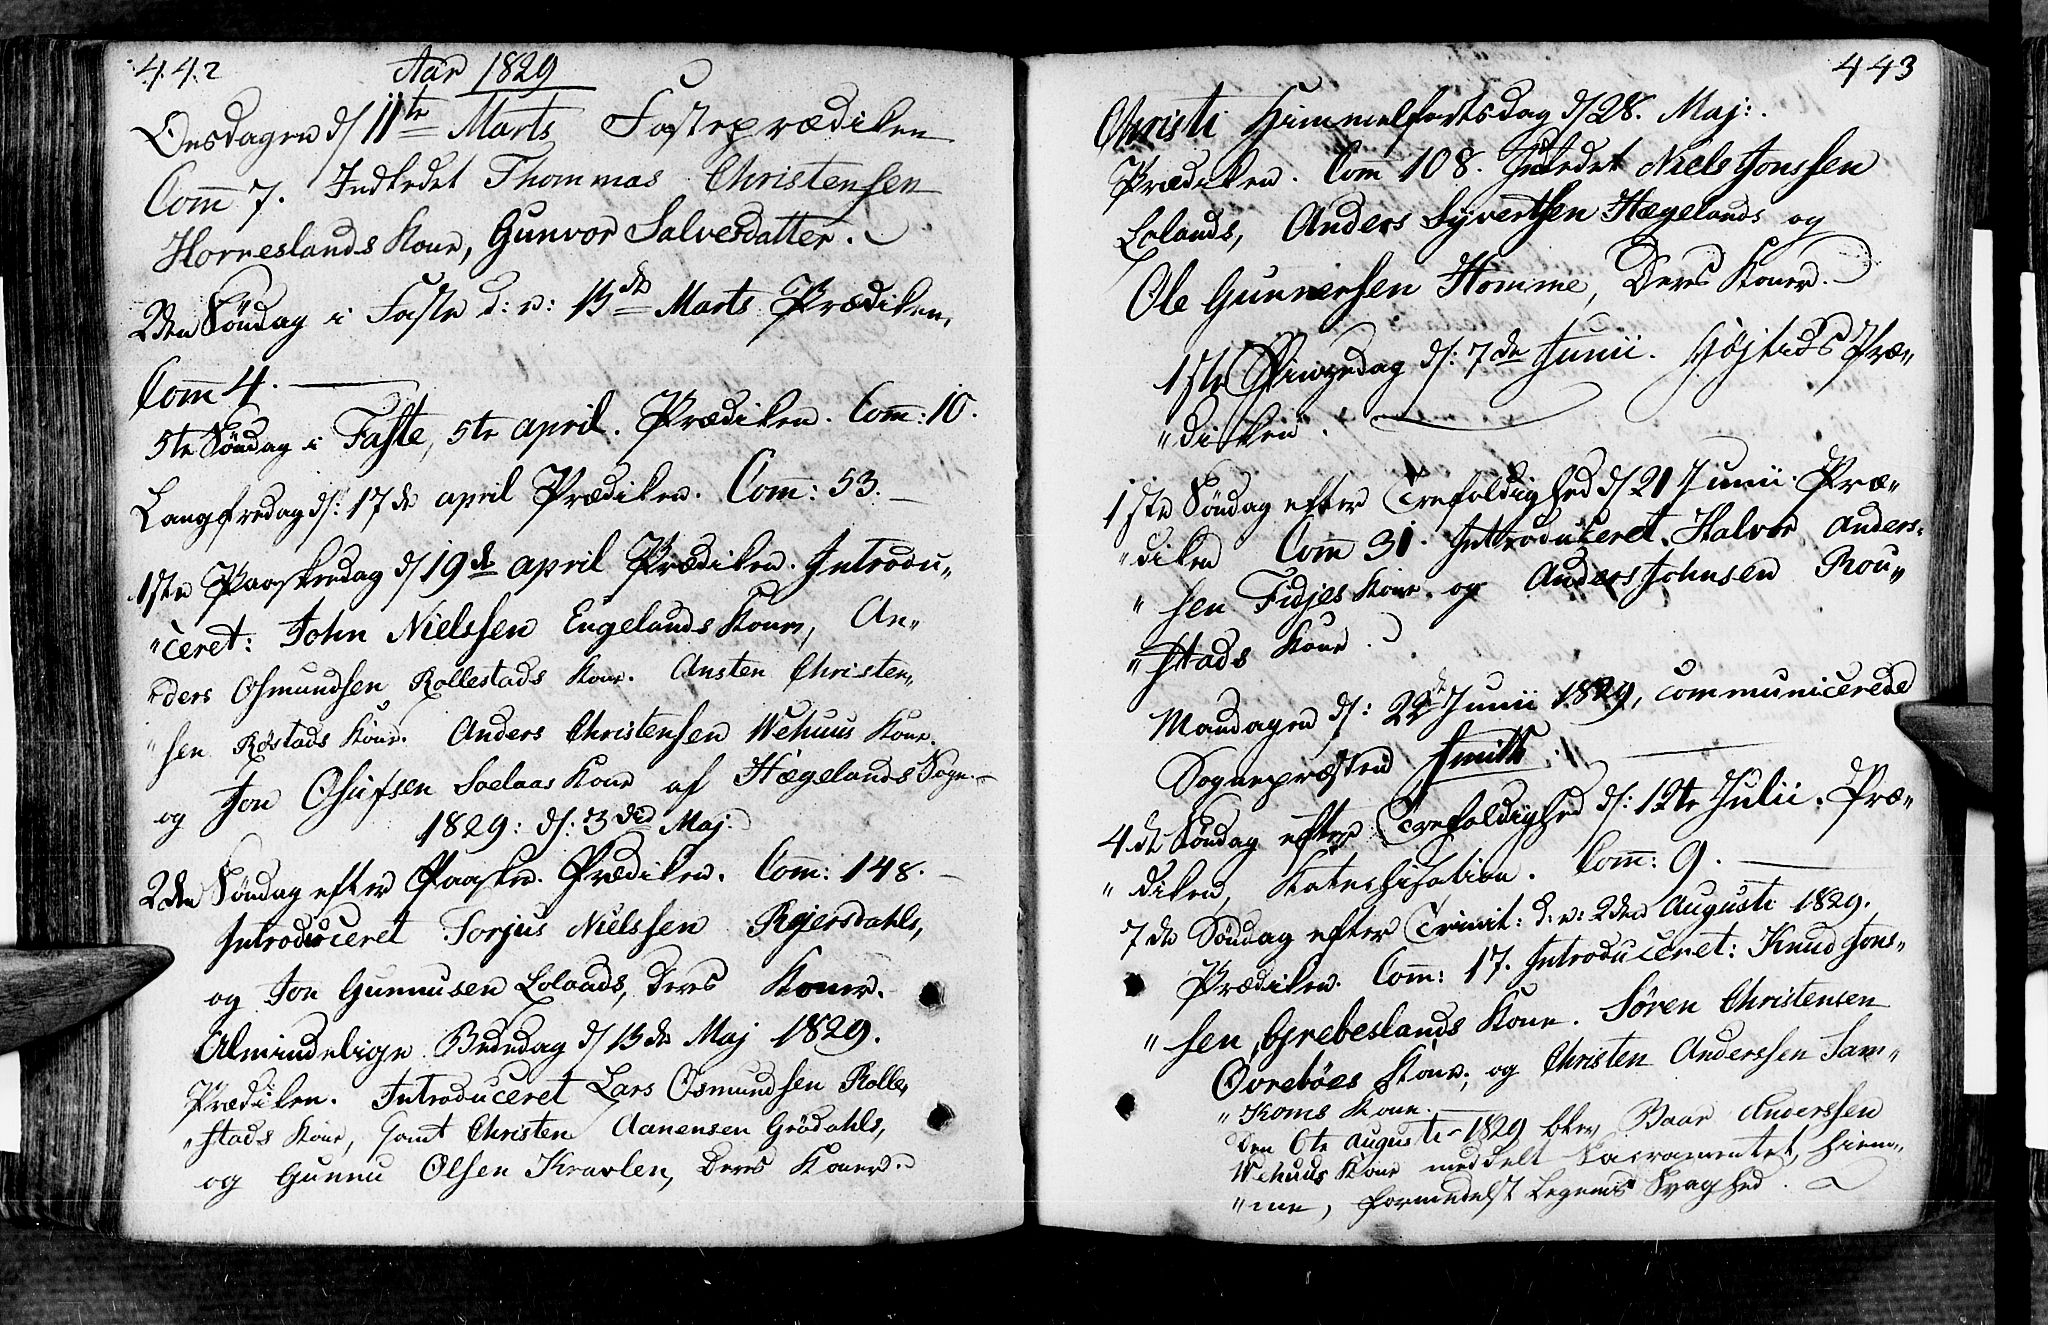 442
Aar 1829
Onsdagen d/ 11te Marts Fasteprædiken
Com̅ 7. Indledet Thommas Christensen
Horneslands Kone, Gunvor Salvesdatter.
2den Søndag i Faste d: v: 15de Marts Prædiken,
Com̅ 4.
5te Søndag i Faste, 5te april. Prædiken. Com̅: 10.
Langfredag d/: 17de april Prædiken. Com̅: 53.
1ste Paaskedag d/ 19de april Prædiken. Introdu„
„ceret: John Nielssen Engelands Kone, An„
„ders Osmundsen Rollestads Kone. Ansten Christen„
„sen Røstads Kone. Anders Christensen Wehuus Kone.
og Jon Osufsen Kone af Hægelands Sogn.
1829: d/: 3die Maj.
2den Søndag efter Paaske. Prædiken. Com̅: 148.
Introduceret Torjus Nielssen Rejersdahls,
og Jon Gunnusen Lolands, deres Koner.
Almindelige Bededag d/ 15de Maj 1829.
Prædiken. Introduceret Lars Osmundsen Rolle„
„stads Kone, samt Christen Aanensen Grødahls,
og Gunnu Olsen Kravlen, deres Koner.
443
Christi Himmelfartsdag d/ 28. Maj:
Prædiken. Com̅ 108. Indledet Niels Jonssen
Lolands, Anders Syvertsen Hægelands og
Ole Gunnersen Homme, Deres Koner.
1ste Pintzedag d/: 7de Junii. Højtids Præ„
„diken.
1ste Søndag efter Trefoldighed d/ 21 Junii Præ„
„diken Com̅ 31. Introduceret Halvor Anders„
„sen Fidjes Kone og Anders Johnsen Rou„
„stads Kone.
Mandagen d/: 22de Junii 1829, communicerede
Sognepræsten Smith.
4de Søndag efter Trefoldighed d/: 12te Julii. Præ„
„diken, Katechisation. Com̅: 9.
7de Søndag efter Trinit: d: v: 2den Augusti 1829.
Prædiken. Com̅: 17. Introduceret: Knud Jons„
„sen, Grebeslands Kone. Søren Christensen
Øvrebøes Kone, og Christen Anderssen Sam„
„Koms Kone.
Den 6te Augusti 1829 blev Baar Anderssen
Wehuus Kone meddelt Sacramentet, hiem„
„me, formedelst Legems Svaghed.